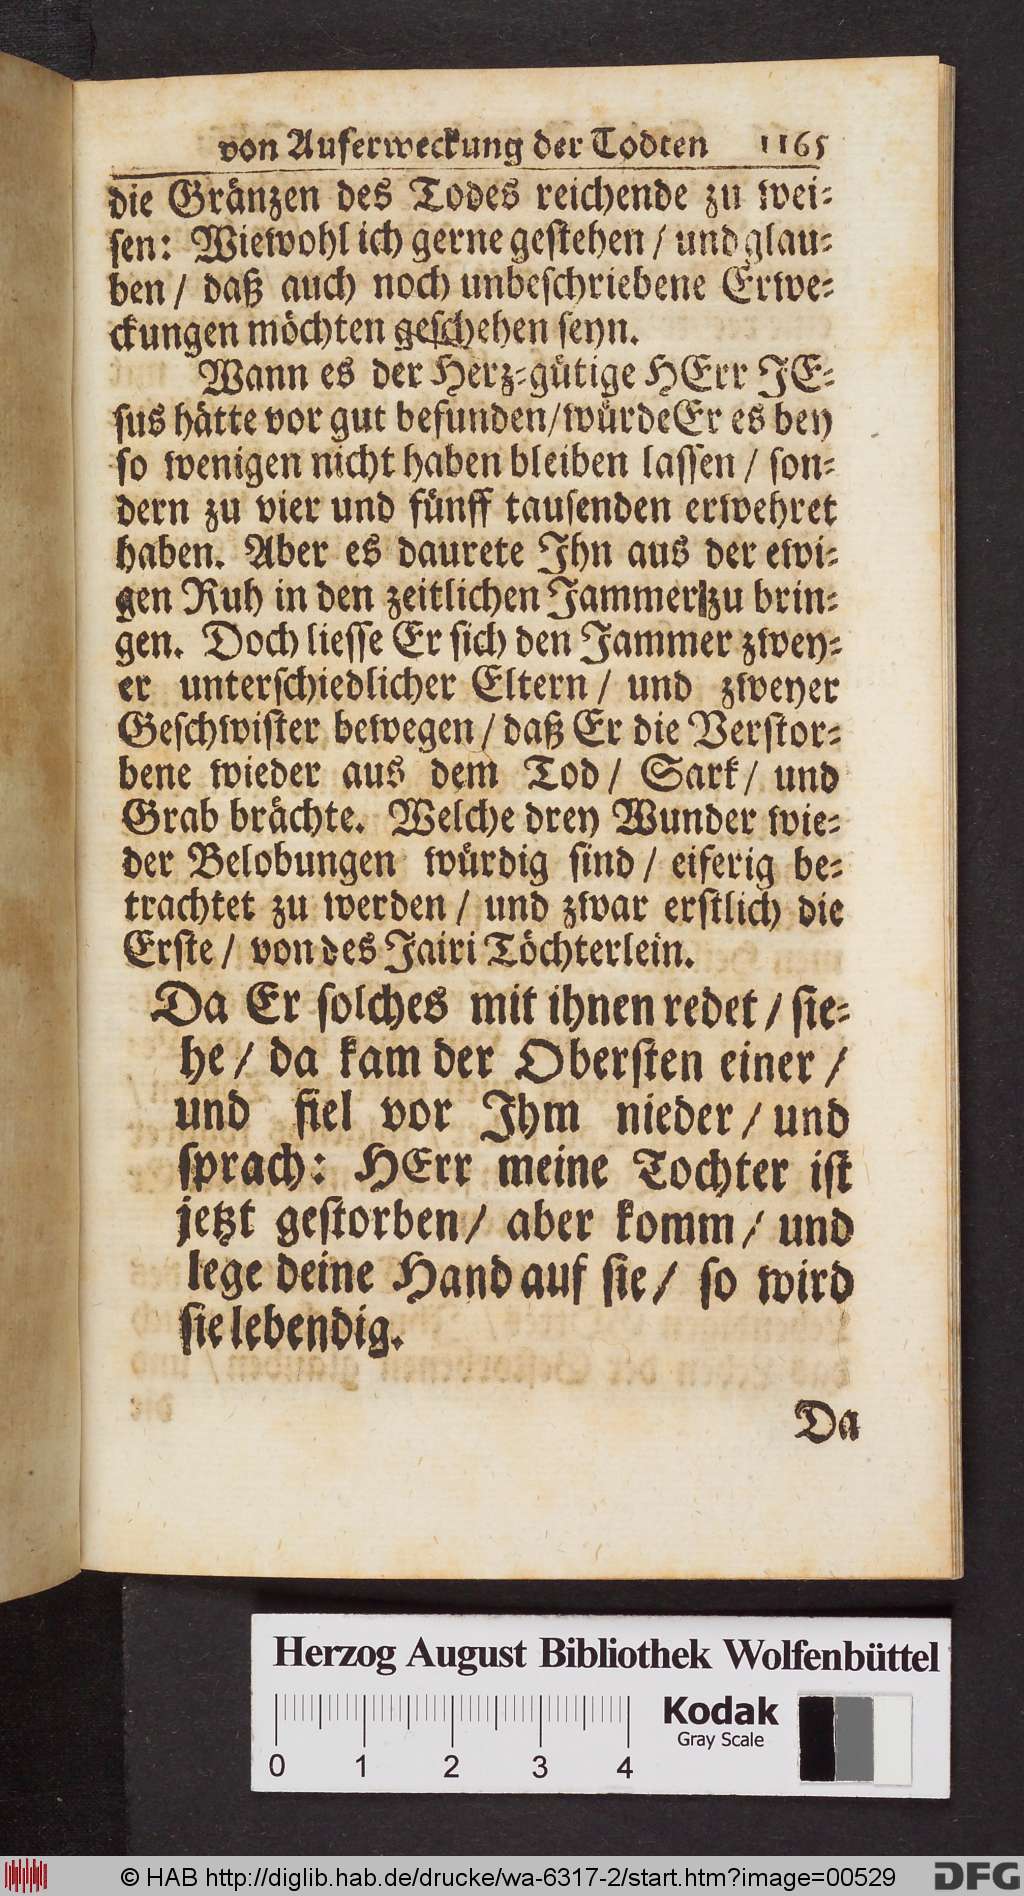 von Auferweckung der Todten 1165
die Gränzen des Todes reichende zu wei-
sen: Wiewohl ich gerne gestehen / und glau-
ben / daß auch noch unbeschriebene Erwe-
ckungen möchten geschehen seyn.
Wann es der Herz-gütige HErr JE-
sus hätte vor gut befunden/würde Er es bey
so wenigen nicht haben bleiben lassen / son-
dern zu vier und fünff tausenden erwehret
haben. Aber es daurete Jhn aus der ewi-
gen Ruh in den zeitlichen Jammer zu brin-
gen. Doch liesse Er sich den Jammer zwey-
er unterschiedlicher Eltern / und zweyer
Geschwister bewegen / daß Er die Verstor-
bene wieder aus dem Tod / Sark / und
Grab brächte. Welche drey Wunder wie-
der Belobungen würdig sind / eiferig be-
trachtet zu werden / und zwar erstlich die
Erste / von des Jairi Töchterlein.
Da Er solches mit ihnen redet / sie-
he / da kam der Obersten einer /
und fiel vor Jhm nieder / und
sprach: HErr meine Tochter ist
jetzt gestorben / aber komm / und
lege deine Hand auf sie / so wird
sie lebendig.
Da
Herzog August Bibliothek Wolfenbüttel
Kodak
Gray Scale
0 1 2 3 4
© HAB http://diglib.hab.de/drucke/wa-6317-2/start.htm?image=00529
DFG